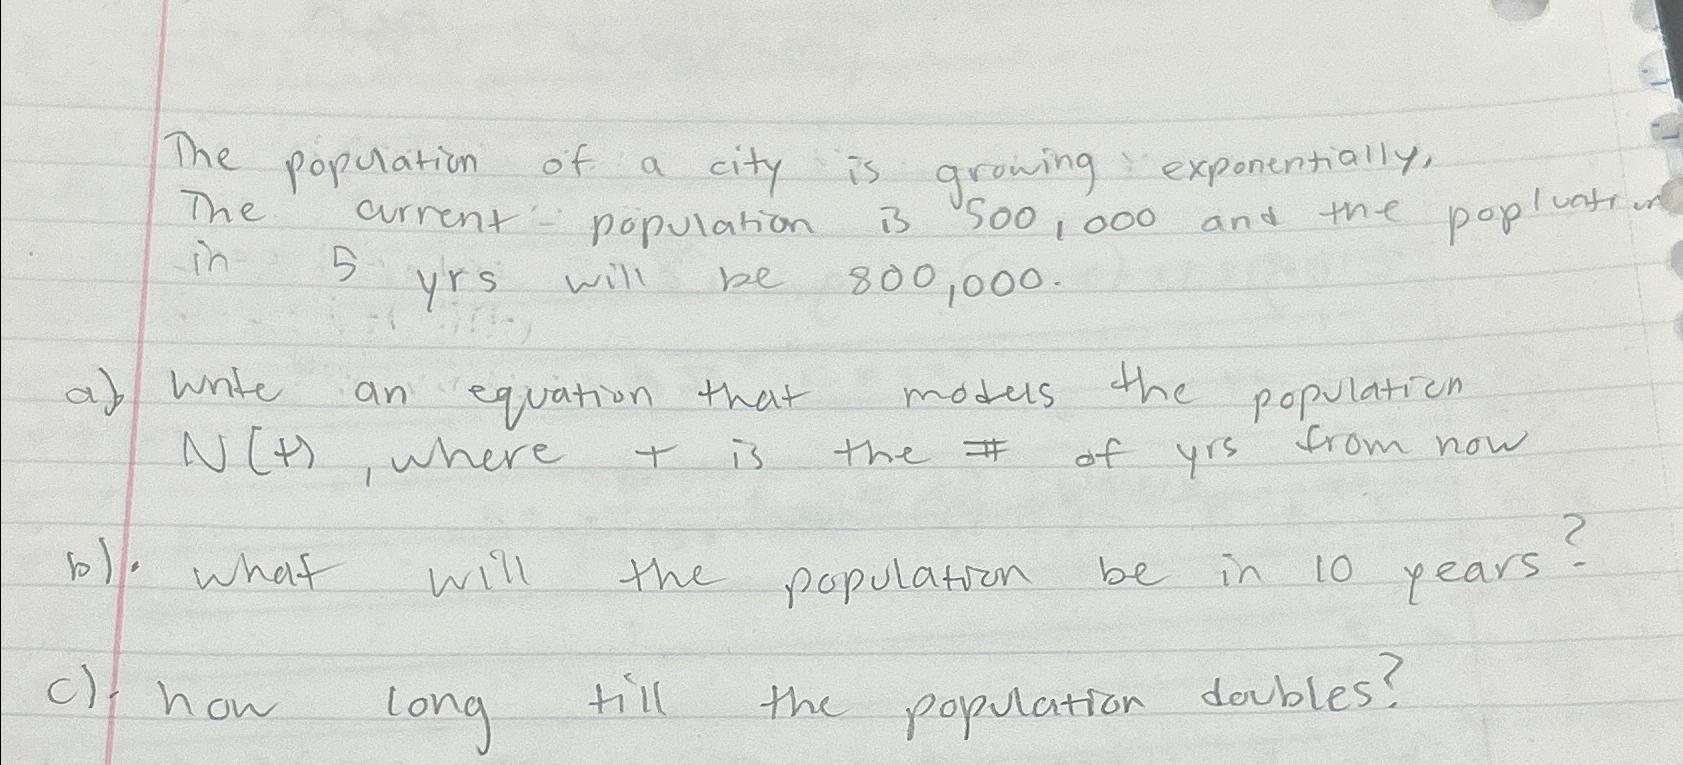 The population of a city is growing exponentially,
The current population is 500,000 and the popluation
in 5 yrs will be 800,000.
a) write an equation that models the population
N(t), where t is the # of yrs from now
b). what will the population be in 10 years?
c). how long till the population doubles?